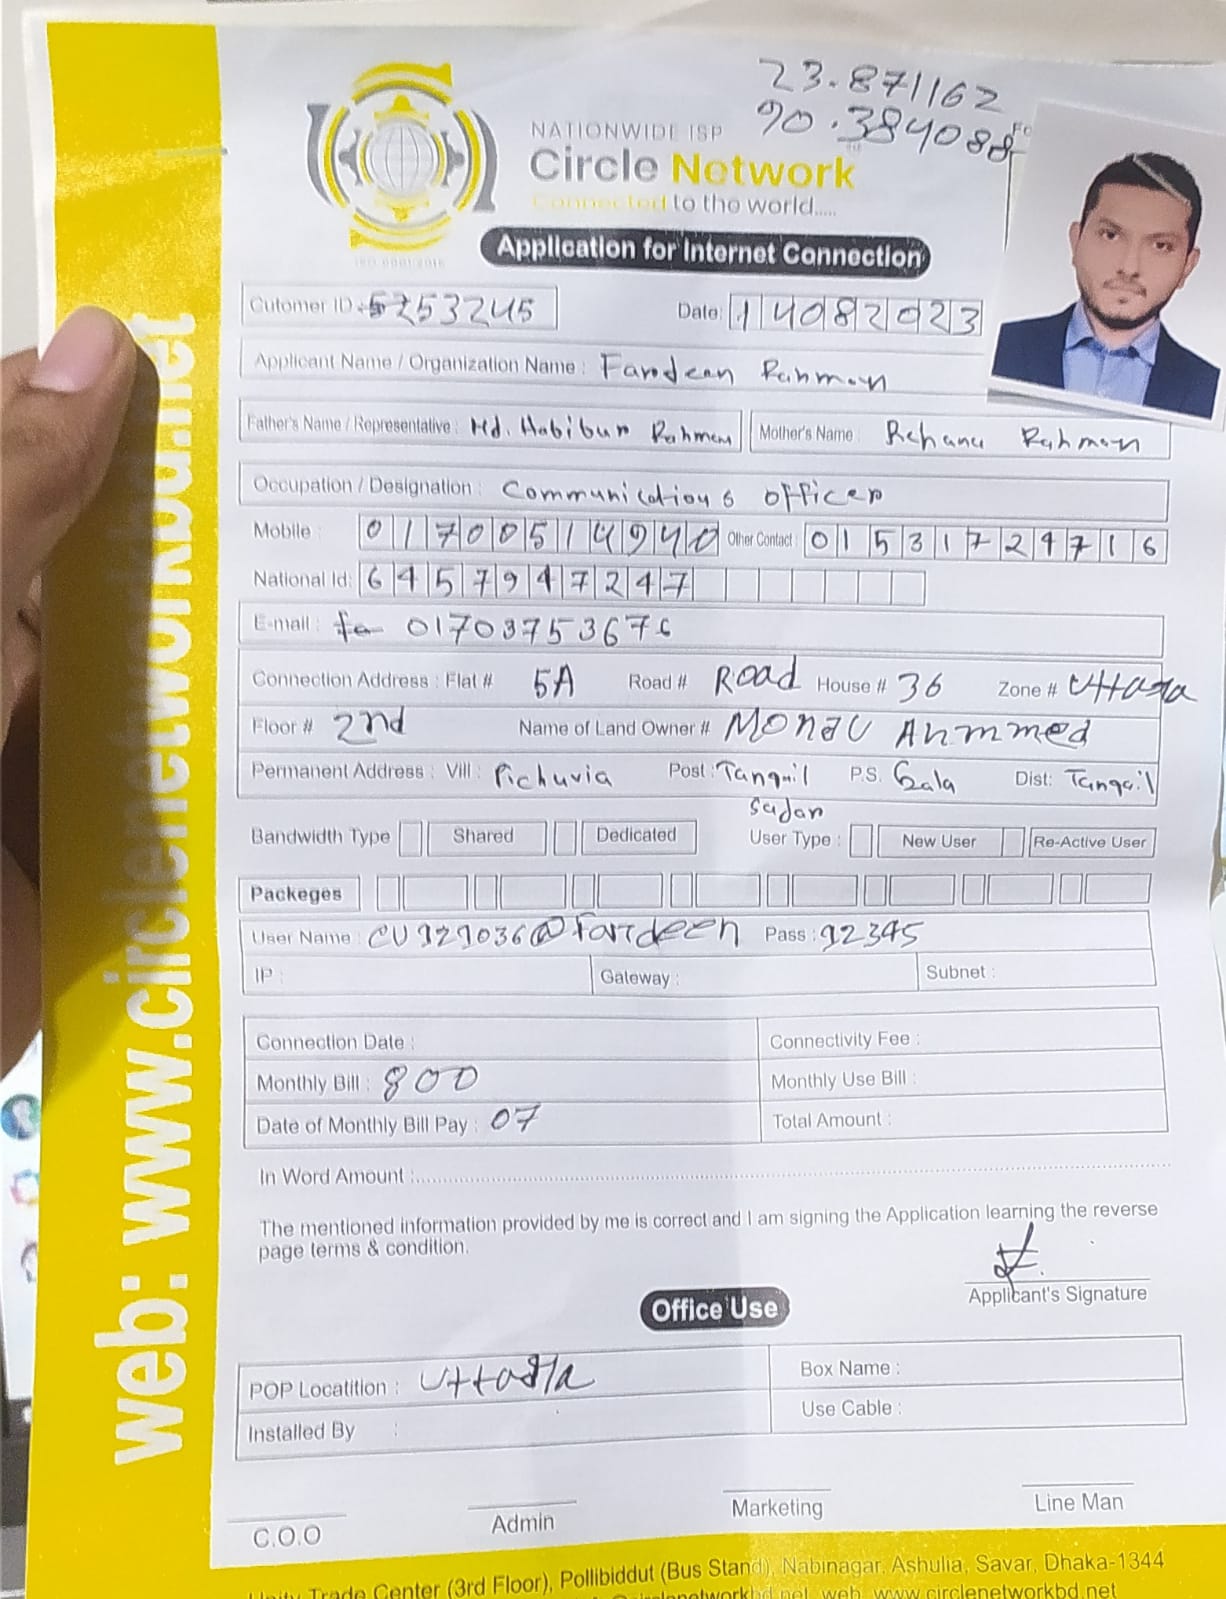 23.871162
90.384088
NATIONWIDE ISP
Circle Network
Connected to the world.....
Application for Internet Connection
Cutomer ID : 5253245
Date: 14082023
Applicant Name / Organization Name : Fardeen Rahman
Father's Name / Representative : Md. Habibur Rahman Mother's Name Rehana Rahman
Occupation / Designation : Communications officer
Mobile : 01700514940 Other Contact : 01531724716
National Id: 6457947247
E-mail : 01703753676
Connection Address : Flat # 5A Road # Road House # 36 Zone # Uttara
Floor # 2nd Name of Land Owner # Ahmmed
Permanent Address : Vill : Pichuria Post : Tangail Sadar P.S. Gala Dist: Tangail
Bandwidth Type Shared Dedicated User Type : New User Re-Active User
Packeges
User Name : CU929036@Fardeen Pass : 92345
IP : Gateway : Subnet :
Connection Date : Connectivity Fee :
Monthly Bill : 800 Monthly Use Bill :
Date of Monthly Bill Pay : 07 Total Amount :
In Word Amount :
The mentioned information provided by me is correct and I am signing the Application learning the reverse
page terms & condition.
Applicant's Signature
Office Use
POP Locatition : Uttara Box Name :
Installed By : Use Cable :
C.O.O Admin Marketing Line Man
Trade Center (3rd Floor), Pollibiddut (Bus Stand), Nabinagar, Ashulia, Savar, Dhaka-1344
web: www.circlenetworkbd.net
web: www.circlenetworkbd.net